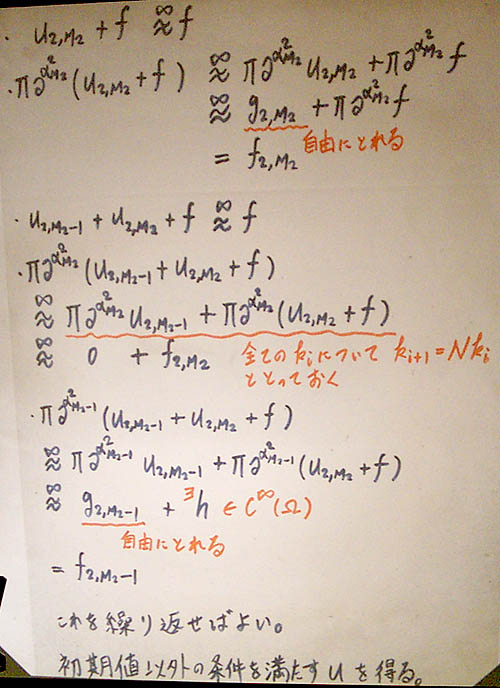 ・u₂,M₂ + f ≈^∞ f
・π∂^{α²_{M₂}}(u₂,M₂ + f) ≈^∞ π∂^{α²_{M₂}}u₂,M₂ + π∂^{α²_{M₂}}f
≈^∞ g₂,M₂ + π∂^{α²_{M₂}}f
自由にとれる
= f₂,M₂
・u₂,M₂₋₁ + u₂,M₂ + f ≈^∞ f
・π∂^{α²_{M₂}}(u₂,M₂₋₁ + u₂,M₂ + f)
≈^∞ π∂^{α²_{M₂}}u₂,M₂₋₁ + π∂^{α²_{M₂}}(u₂,M₂ + f)
≈^∞ 0 + f₂,M₂
全てのkᵢについて kᵢ₊₁ = Nkᵢ
ととっておく
・π∂^{α²_{M₂-1}}(u₂,M₂₋₁ + u₂,M₂ + f)
≈^∞ π∂^{α²_{M₂-1}}u₂,M₂₋₁ + π∂^{α²_{M₂-1}}(u₂,M₂ + f)
≈^∞ g₂,M₂₋₁ + ^∃h ∈ C^∞(Ω)
自由にとれる
= f₂,M₂₋₁
これを繰り返せばよい。
初期値以外の条件を満たすuを得る。